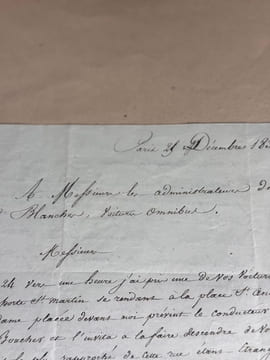 Paris 21 Décembres 18
A Messieurs les administrateurs d
Blanches, Voitures Omnibus.
Messieurs
24 vers une heure j'ai pris une de vos Voiture
porte St martin se rendant à la place St
dame placée devant moi prévint le conducteur
Boucher et l'invita à la faire descendre de vo
plus rapproché de cette rue étant